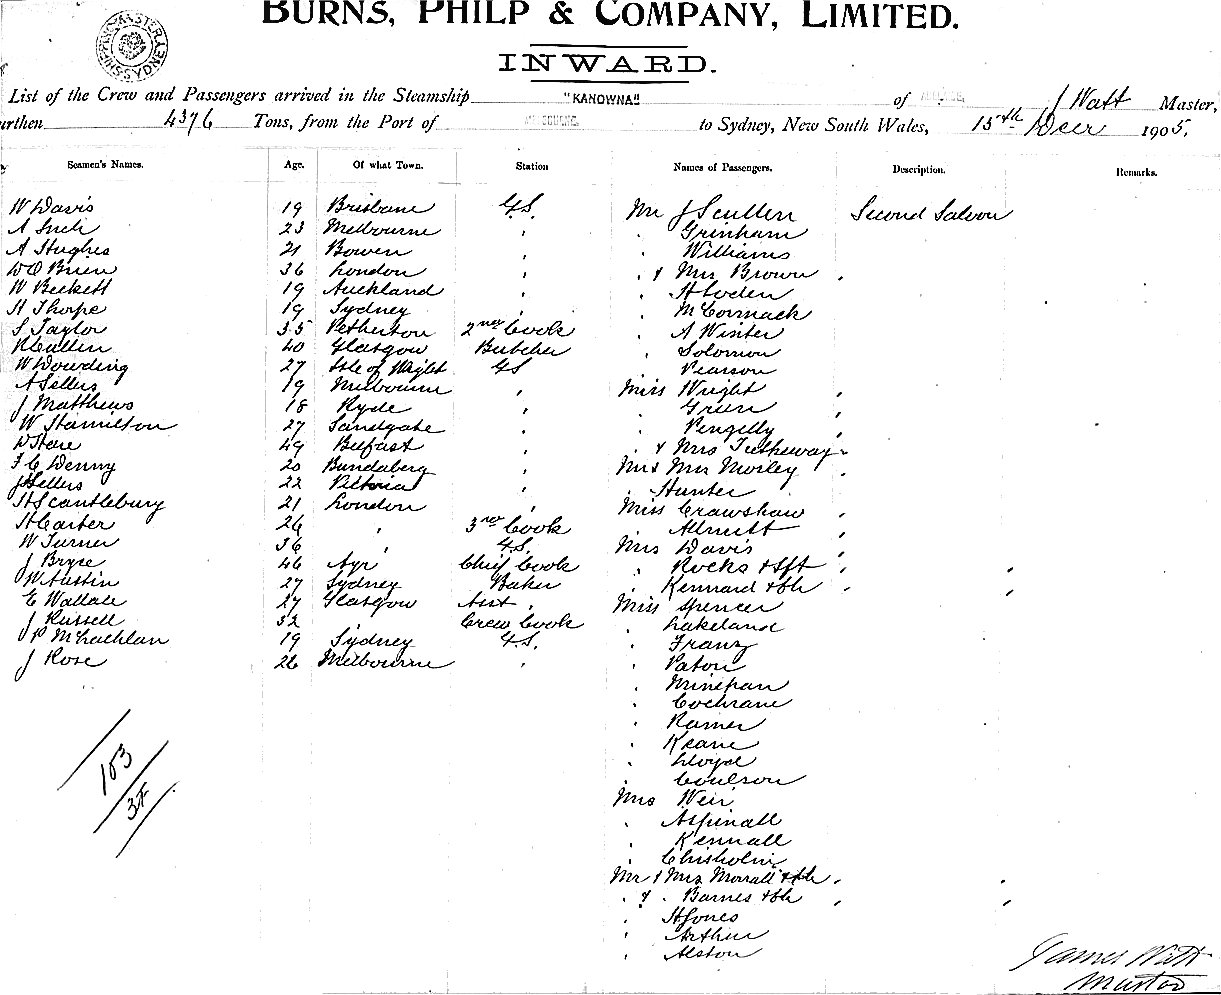 BURNS, PHILP & COMPANY, LIMITED.
INWARD.
List of the Crew and Passengers arrived in the Steamship "KANOWNA" of J Watt Master,
urthen 4376 Tons, from the Port of to Sydney, New South Wales, 15th Decr 1905.
Seamen's Names. Age. Of what Town. Station Names of Passengers. Description. Remarks.
W Davis 19 Brisbane G.S. Mr J Scullen Second Saloon
A Such 23 Melbourne " " Grinham
A Hughes 21 Bowen " " Williams
W O'Brien 36 London " " & Mrs Brown "
W Beckett 19 Auckland " " H Loden
H Thorpe 19 Sydney " " McCormack
S Taylor 35 Petherton 2nd Cook " A Winter
R Cullen 40 Glasgow Butcher " Solomon
W Dowding 27 Isle of Wight GS " Pearson
A Sellers 19 Melbourne " Miss Wright "
J Matthews 18 Ryde " " Green "
W Hamilton 27 Sandgate " " Pengelly "
W Hare 49 Belfast " " & Mrs Tretheway "
F C Denny 20 Bundaberg " Mr & Mrs Morley "
J Sellers 22 Victoria " " Hunter
H Scantlebury 21 London " Miss Crawshaw "
H Carter 26 " 3rd Cook " Allnutt "
W Turner 36 " G.S. Mrs Davis "
J Bryce 46 Ayr Chief Cook " Rocks & Sft " "
W Austin 27 Sydney Baker " Kennard & ch " "
E Wallace 27 Glasgow Asst " Miss Spencer
J Russell 32 Crew Cook " Lakeland
P McLachlan 19 Sydney G.S. " Franz
J Rose 26 Melbourne " " Paton
" Minehan
" Cochrane
" Ramer
" Keane
" Lloyd
" Coulson
Mrs Weir
" Aspinall
" Kennall
" Chisholm
Mr & Mrs Morrall & ch " "
" & " Barnes & ch " "
" H Jones
" Arthur
" Alston
103
37
James Watt
Master